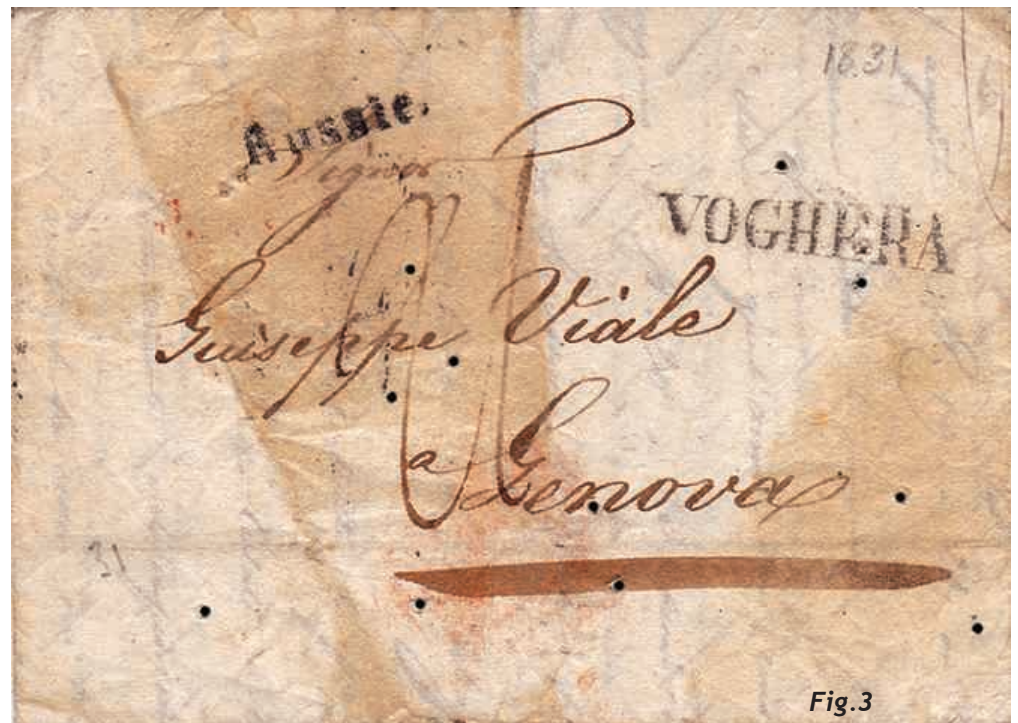 1831
Russie.
Signor
VOGHERA
Guiseppe Viale
a Genova
31
Fig.3